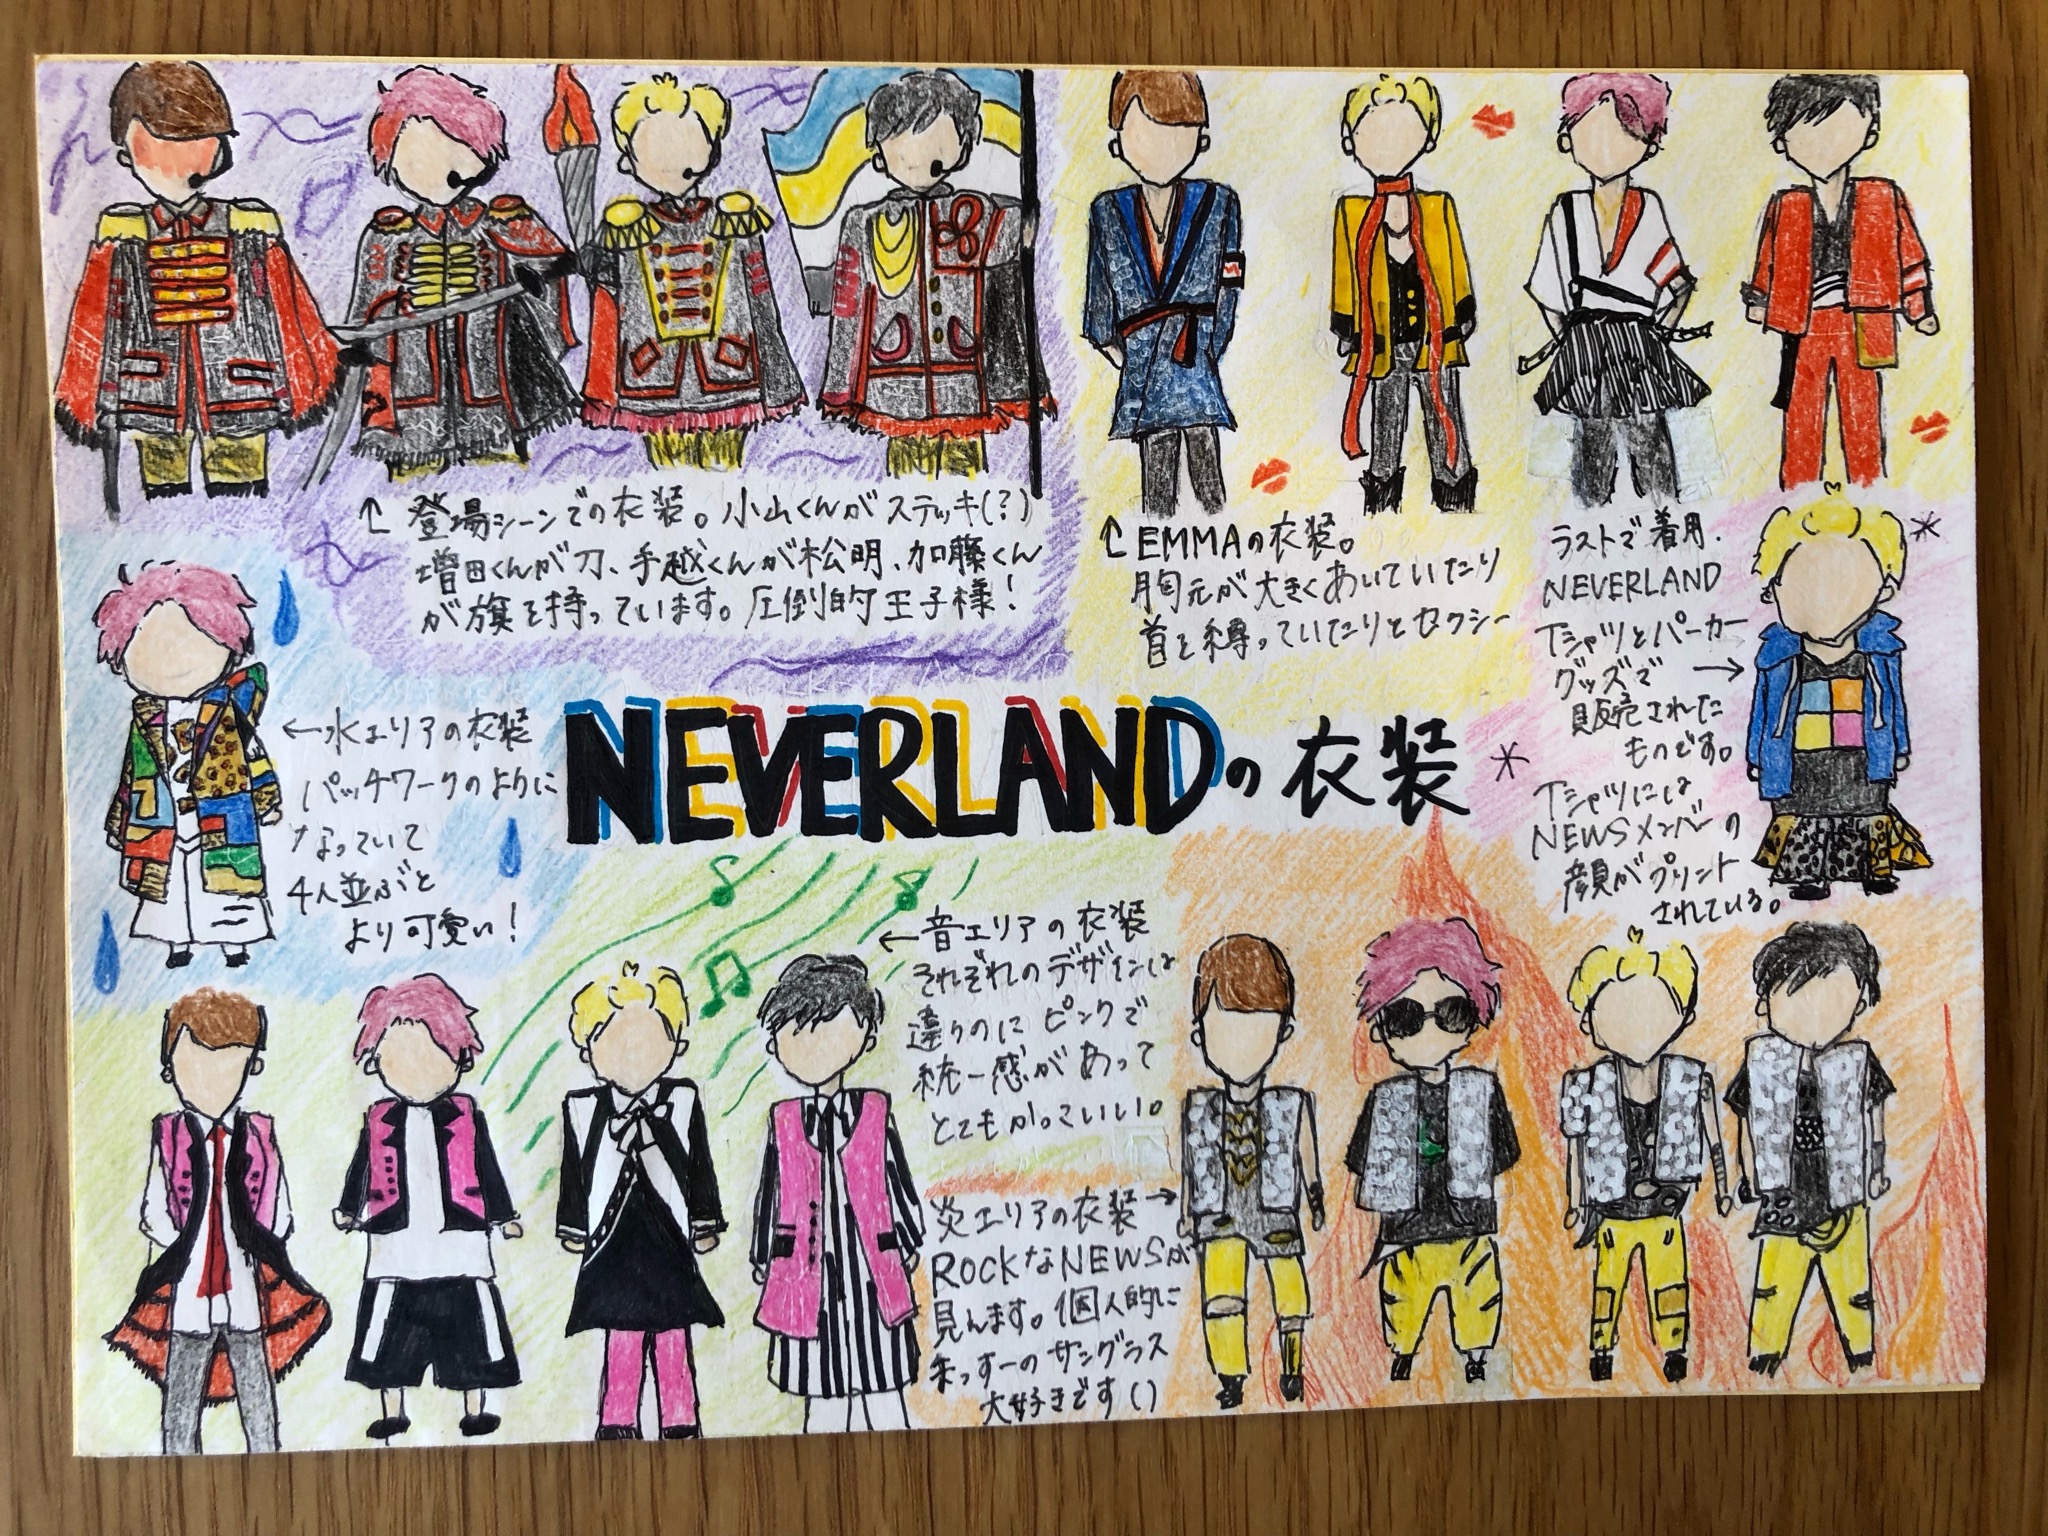 ↑ 登場シーンでの衣装。小山くんがステッキ(?)
増田くんが刀、手越くんが松明、加藤くん
が旗を持っています。圧倒的王子様!
↑EMMAの衣装。
胸元が大きくあいていたり
首を縛っていたりとセクシー
ラストで着用。
NEVERLAND
Tシャツとパーカー
グッズで →
販売された
ものです。
Tシャツには
NEWSメンバーの
顔がプリント
されている。
←水エリアの衣装
パッチワークのように
なっていて
4人並ぶと
より可愛い!
NEVERLANDの衣装
←音エリアの衣装
それぞれのデザインは
違うのにピンクで
統一感があって
とてもかっこいい。
炎エリアの衣装→
ROCKなNEWSが
見れます。個人的に
まっすーのサングラス
大好きです()